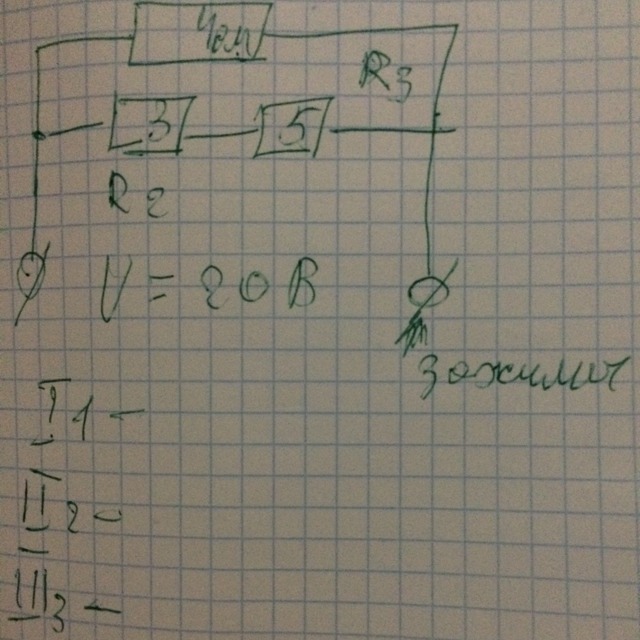 4 ом
R3
3 5
R2
U = 20 В
зажимы
I 1 -
II 2 -
III 3 -